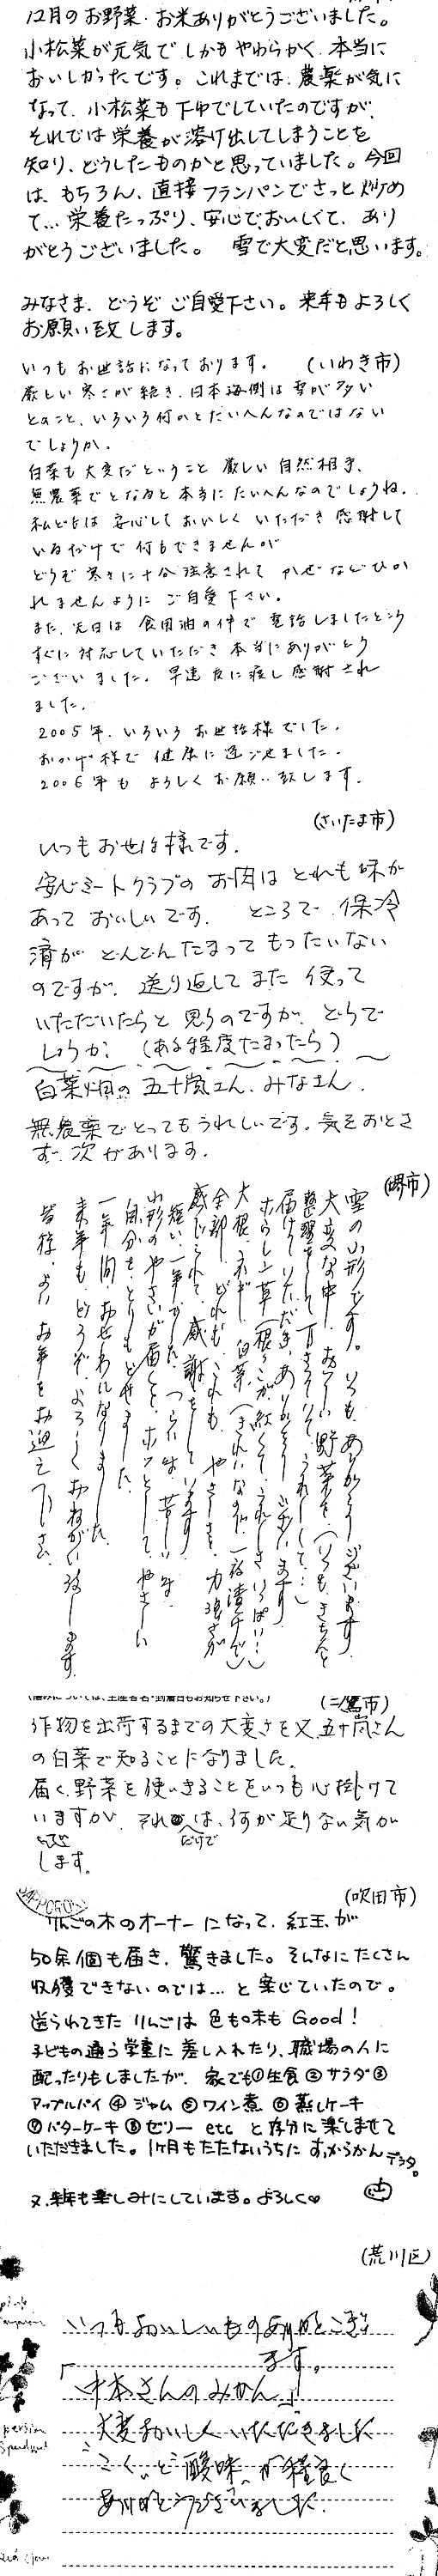 12月のお野菜・お米ありがとうございました。
小松菜が元気で しかも やわらかく、本当に
おいしかったです。これまでは、農薬が気に
なって、小松菜も下ゆでしていたのですが、
それでは栄養が溶け出してしまうことを
知り、どうしたものかと思っていました。今回
は、もちろん、直接フランパンでさっと炒め
て…栄養たっぷり、安心で、おいしくて、あり
がとうございました。 雪で大変だと思います。
みなさま、どうぞ ご自愛下さい。来年もよろしく
お願い致します。
(いわき市)
いつも お世話になっております。
厳しい寒さが続き、日本海側は雪が多い
とのこと、いろいろ何かとたいへんなのではない
でしょうか。
白菜も大変だということ 厳しい自然相手、
無農薬でとなると本当にたいへんなのでしょうね。
私どもは 安心して おいしく いただき 感謝して
いるだけで 何もできませんが
どうぞ 寒さに十分注意されて かぜなどひか
れませんように ご自愛下さい。
また、先日は 食用油の件で 電話しましたところ
すぐに対応していただき 本当にありがとう
ございました。早速友に渡し感謝され
ました。
2005年、いろいろ お世話様でした。
おかげ様で 健康に過ごせました。
2006年も よろしくお願い致します。
(さいたま市)
いつもお世話様です。
安心ミートクラブの お肉は どれも味が
あって おいしいです。 ところで、保冷
済が どんどんたまって もったいない
のですが、送り返して また 使って
いただいたらと 思うのですが、どうで
しょうか? (ある程度たまったら)
白菜畑の 五十嵐さん、みなさん、
無農薬でとってもうれしいです。気をおとさ
ず、次があります。
(堺市)
雪の山形です。いつも、ありがとうございます。
大変な中、おいしい野菜を、(いつも、きちんと
整理をして下さっていて、うれしくて…)
届けていただき、ありがとうございます。
ほうれん草(根っこが紅くて、うれしさいっぱい…)
大根、ネギ、白菜、(きれいなので、一夜漬けで)
全部、どれも、これも、やさしさと、力強さが
感じられて、感謝をしています。
短い、一年でした。つらい時、苦しい時、
山形のやさいが届くと、ホッとして、やさしい
自分を、とりもどせました。
一年間、おせわになりました。
来年も、どうぞ、よろしくおねがい致します。
皆様、よいお年をお迎え下さい。
(三鷹市)
作物を出荷するまでの大変さを又、五十嵐さん
の白菜で知ることになりました。
届く野菜を使いきることをいつも心掛けて
いますが、それだけでは、何か足りない気が
します。
(吹田市)
SAPPORO
りんごの木のオーナーになって、紅玉が
50余個も届き、驚きました。そんなにたくさん
収穫できないのでは…と案じていたので。
送られてきたりんごは 色も味も Good!
子どもの通う学童に差し入れたり、職場の人に
配ったりもしましたが、家でも①生食②サラダ③
アップルパイ④ジャム⑤ワイン煮⑥蒸しケーキ
⑦バターケーキ⑧ゼリー etc と存分に楽しませて
いただきました。1ヶ月もたたないうちに すっからかんデシタ。
又、来年も楽しみにしています。よろしく♡
(荒川区)
いつもおいしいものありがとうござい
ます。
「中本さんのみかん」
大変おいしくいただきました
"こく"と"酸味"が程良く
ありがとうございました。